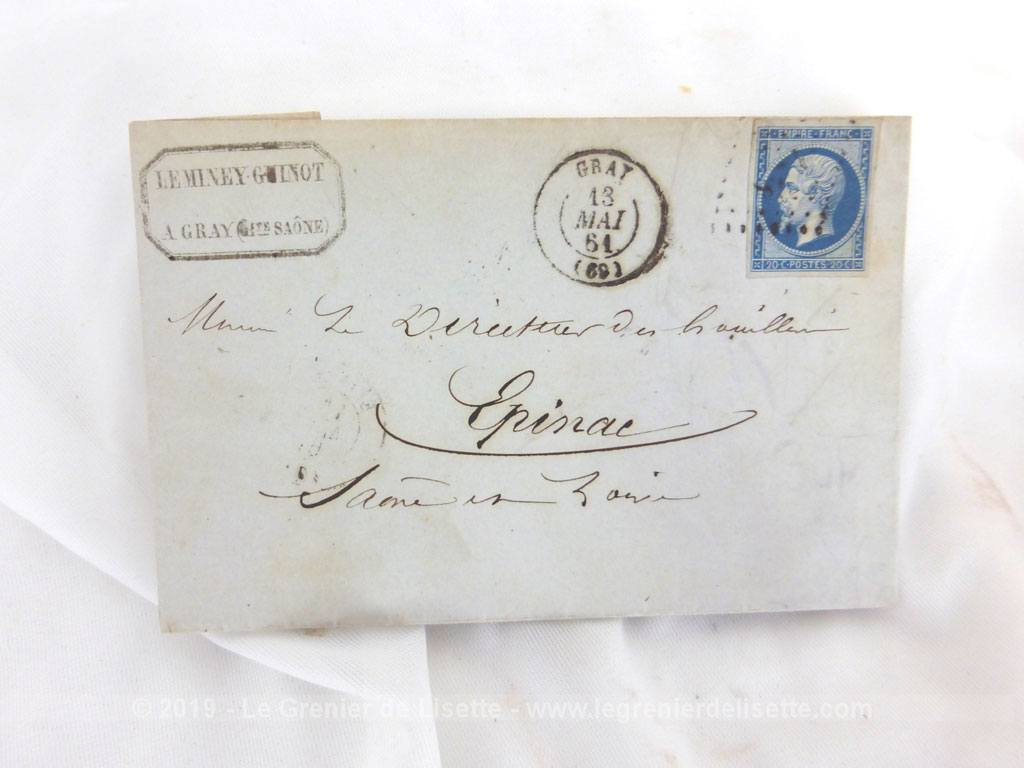 LEMINEY-GUINOT
A GRAY (HTE SAÔNE)
GRAY
13
MAI
61
(69)
EMPIRE FRANC
20 C POSTES 20 C
Le Directeur des houillères
Epinac
Saône et Loire
© 2019 - Le Grenier de Lisette - www.legrenierdelisette.com